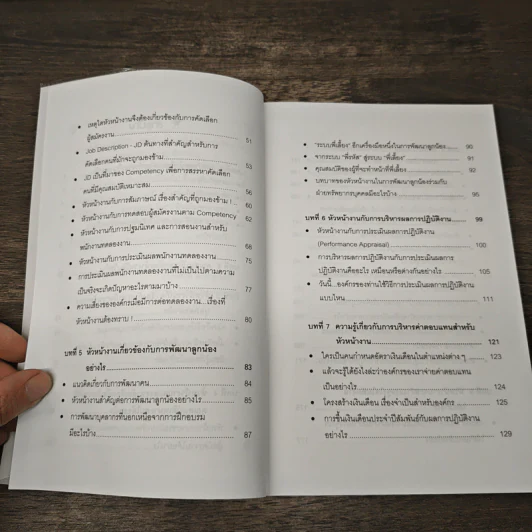 • เหตุใดหัวหน้างานจึงต้องเกี่ยวข้องกับการคัดเลือก
ผู้สมัครงาน ........ 51
• Job Description - JD ต้นทางที่สำคัญสำหรับการ
คัดเลือกคนที่มักจะถูกมองข้าม ........ 53
• JD เป็นที่มาของ Competency เพื่อการสรรหาคัดเลือก
คนที่มีคุณสมบัติเหมาะสม ........ 56
• หัวหน้างานกับการสัมภาษณ์ เรื่องสำคัญที่ถูกมองข้าม ! ... 60
• หัวหน้างานกับการทดสอบผู้สมัครงานตาม Competency 62
• หัวหน้างานกับการปฐมนิเทศ และการสอนงานสำหรับ
พนักงานทดลองงาน ........ 68
• หัวหน้างานกับการประเมินผลพนักงานทดลองงาน ........ 75
• การประเมินผลพนักงานทดลองงานที่ไม่เป็นไปตามความ
เป็นจริงจะเกิดปัญหาอะไรตามมาบ้าง ........ 77
• ความเสี่ยงขององค์กรเมื่อมีการต่อทดลองงาน...เรื่องที่
หัวหน้างานต้องทราบ ! ........ 80
บทที่ 5 หัวหน้างานเกี่ยวข้องกับการพัฒนาลูกน้อง
อย่างไร ........ 83
• แนวคิดเกี่ยวกับการพัฒนาคน ........ 84
• หัวหน้างานสำคัญต่อการพัฒนาลูกน้องอย่างไร ........ 85
• การพัฒนาบุคลากรที่นอกเหนือจากการฝึกอบรม
มีอะไรบ้าง ........ 87
• "ระบบพี่เลี้ยง" อีกเครื่องมือหนึ่งในการพัฒนาลูกน้อง ........ 90
• จากระบบ "พี่รหัส" สู่ระบบ "พี่เลี้ยง" ........ 91
• คุณสมบัติของผู้ที่จะทำหน้าที่พี่เลี้ยง ........ 92
• บทบาทของหัวหน้างานในการพัฒนาลูกน้องร่วมกับ
ฝ่ายทรัพยากรบุคคลมีอะไรบ้าง ........ 95
บทที่ 6 หัวหน้างานกับการบริหารผลการปฏิบัติงาน ........ 99
• หัวหน้างานกับการประเมินผลการปฏิบัติงาน
(Performance Appraisal) ........ 100
• การบริหารผลการปฏิบัติงานกับการประเมินผลการ
ปฏิบัติงานคืออะไร เหมือนหรือต่างกันอย่างไร ........ 105
• วันนี้...องค์กรของท่านใช้วิธีการประเมินผลการปฏิบัติงาน
แบบไหน ........ 111
บทที่ 7 ความรู้เกี่ยวกับการบริหารค่าตอบแทนสำหรับ
หัวหน้างาน ........ 121
• ใครเป็นคนกำหนดอัตราเงินเดือนในตำแหน่งต่าง ๆ ........ 123
• แล้วจะรู้ได้ยังไงล่ะว่าองค์กรของเราจ่ายค่าตอบแทน
เป็นอย่างไร ........ 124
• โครงสร้างเงินเดือน เรื่องจำเป็นสำหรับองค์กร ........ 125
• การขึ้นเงินเดือนประจำปีสัมพันธ์กับผลการปฏิบัติงาน
อย่างไร ........ 129